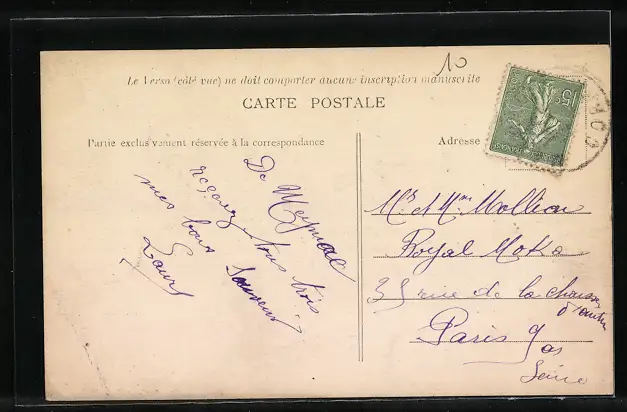 10
Le Verso (côté vue) ne doit comporter aucune inscription manuscrite
CARTE POSTALE
Partie exclusivement réservée à la correspondance
Adresse
15c
De Meymac
recevez tous trois
mes bons Souvenirs
Mr et Mme
Royal Moka
35 rue de la chaussée
d'antin
Paris 9
Seine